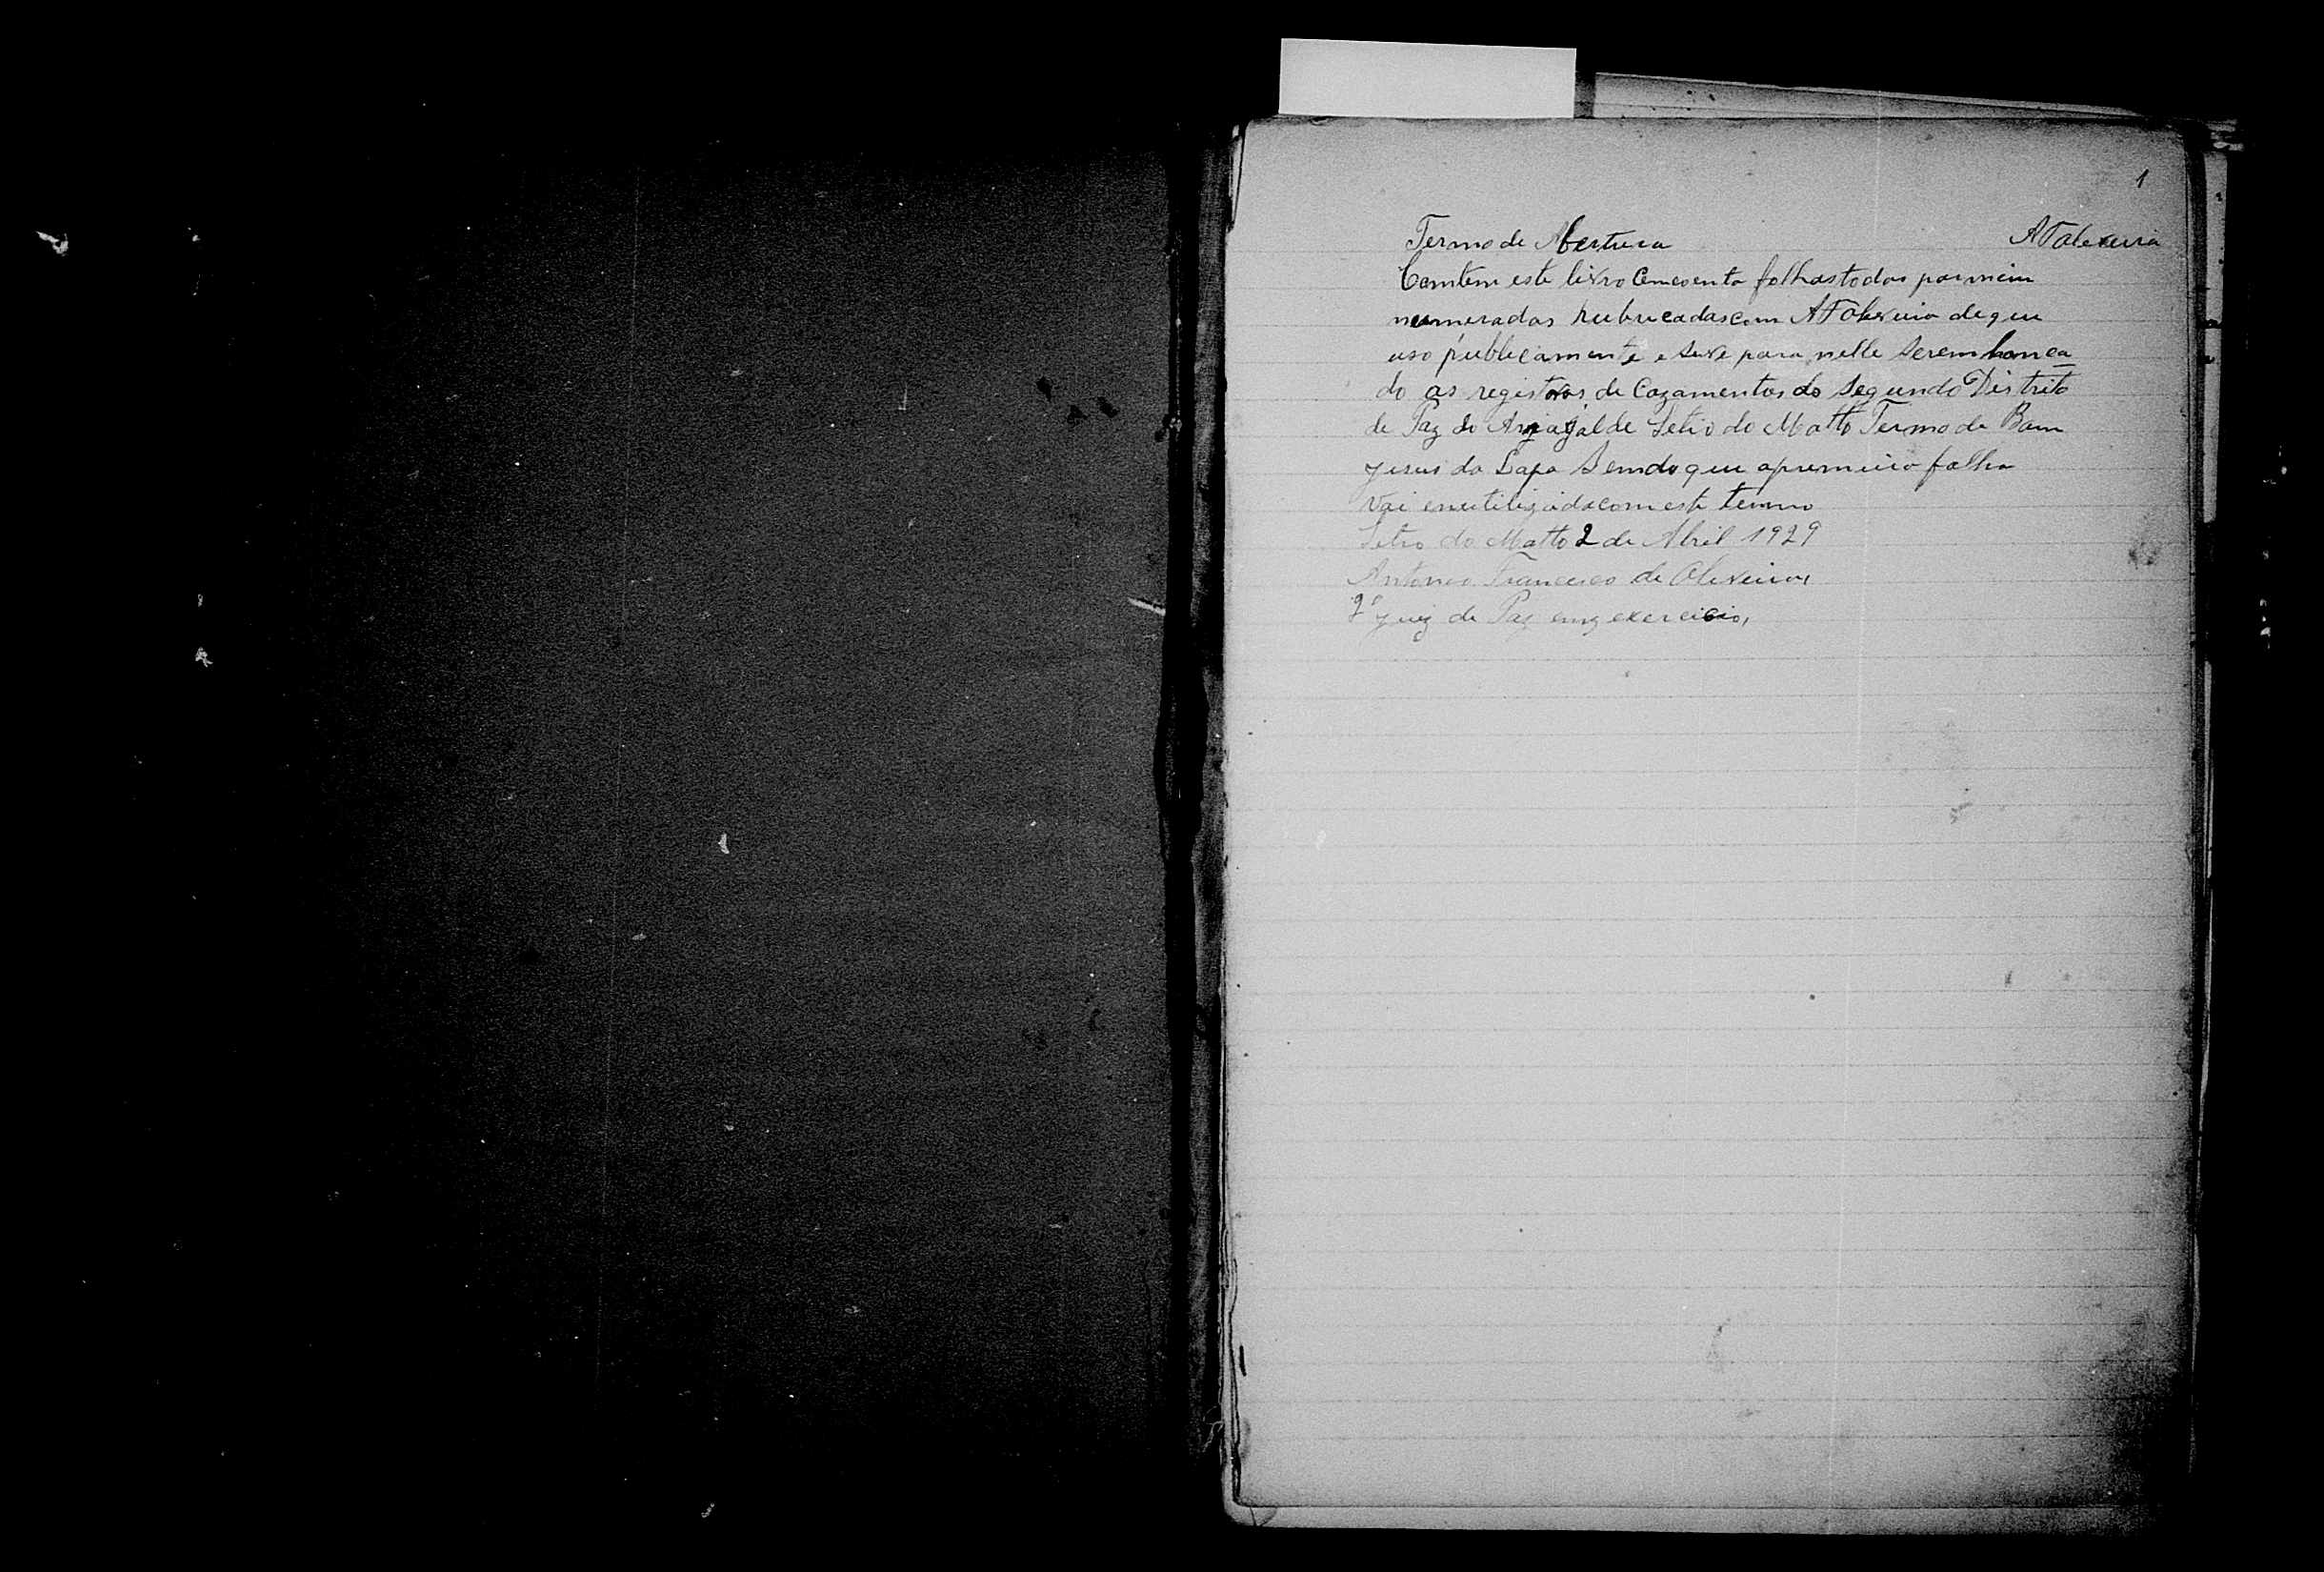 1
Termo de Abertura AFOliveira
Contem este livro Cincoenta folhas todas por mim
numeradas rubricadas com AFOliveira de que
uso publicamente e serve para nelle serem lança
do as registros de Cazamentos do Segundo Distrito
de Paz do Arrayal de Setio do Matto Termo de Bom
Jesus da Lapa Sendo que a primeira folha
Vai inutilizada com este termo
Setio do Matto 2 de Abril 1929
Antonio Francisco de Oliveira
2º Juiz de Paz em exercicio,